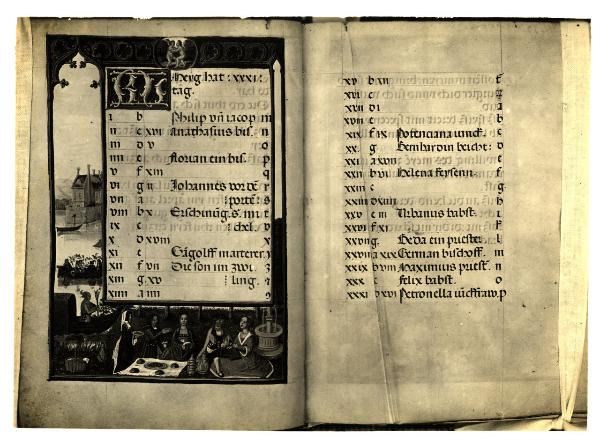 Meyg hat xxxi
tag.
i b Philip vn iacop m
ii c xvi anathasius bis. n
iii d v o
iiii e florian ein bis. p
v f xiii q
vi g ii Johannes vor de r
vii a porte
viii b x Erschinug s. m t
ix c chel
x d xviii
xi e vii Gagolff marterer
xii f vii Die son im zwi
xiii g xv ling.
xiiii a iiii
xv b xii
xvi c
xvii d i
xviii e
xix f ix Potenciana iunck.
xx g Bernhardin beicht
xxi a xvii
xxii b vi Helena keysenn
xxiii c
xxiiii d xiiii
xxv e iii Urbanus babst.
xxvi f xi
xxvii g Beda ein priester
xxviii a xix German bischoff. m
xxix b viii Maximius priest. n
xxx c felix babst o
xxxi d xvi Petronella p